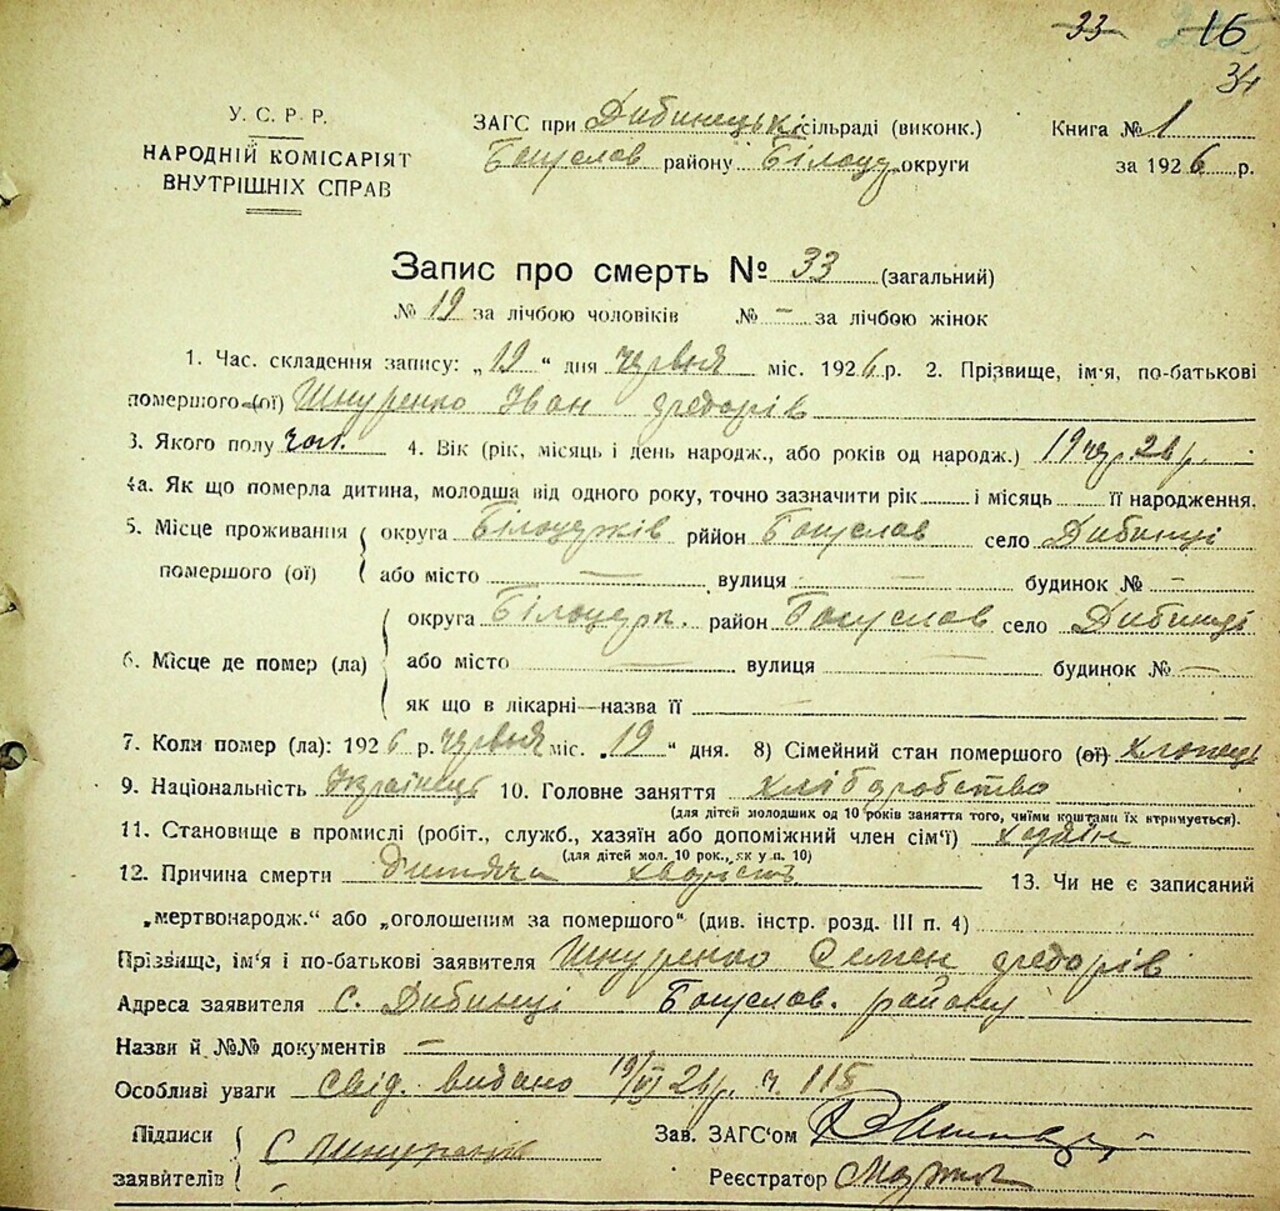 33 16
34
У. С. Р. Р.
НАРОДНІЙ КОМІСАРІЯТ
ВНУТРІШНІХ СПРАВ
ЗАГС при Дибинецькі сільраді (виконк.)
Богуслав району Білоцер округи
Книга № 1
за 1926 р.
Запис про смерть № 33 (загальний)
№ 19 за лічбою чоловіків № – за лічбою жінок
1. Час. складення запису: „19“ дня червня міс. 1926 р. 2. Прізвище, ім'я, по-батькові
помершого (ої) Шнуренко Іван Федорів
3. Якого полу чол. 4. Вік (рік, місяць і день народж., або років од народж.) 19 чер. 26 р.
4а. Як що померла дитина, молодша від одного року, точно зазначити рік і місяць її народження.
5. Місце проживання помершого (ої) округа Білоцерків рййон Богуслав село Дибинці
або місто — вулиця — будинок № –
6. Місце де помер (ла) округа Білоцерк. район Богуслав село Дибинці
або місто — вулиця — будинок № —
як що в лікарні—назва її
7. Коли помер (ла): 1926 р. червня міс. „19“ дня. 8) Сімейний стан помершого (ої) хлопець
9. Національність Українець 10. Головне заняття хліборобство
(для дітей молодших од 10 років заняття того, чиїми коштами їх втримується).
11. Становище в промислі (робіт., служб., хазяїн або допоміжний член сім'ї) хазяїн
(для дітей мол. 10 рок., як у п. 10)
12. Причина смерти Дитяча хворість 13. Чи не є записаний
„мертвонародж.“ або „оголошеним за помершого“ (див. інстр. розд. III п. 4)
Прізвище, ім'я і по-батькові заявителя Шнуренко Семен Федорів
Адреса заявителя с. Дибинці Богуслав. району
Назви й №№ документів —
Особливі уваги свід. видано 19/VI 26 р. ч. 115
Підписи заявителів С Шнуренко
Зав. ЗАГС'ом
Реєстратор